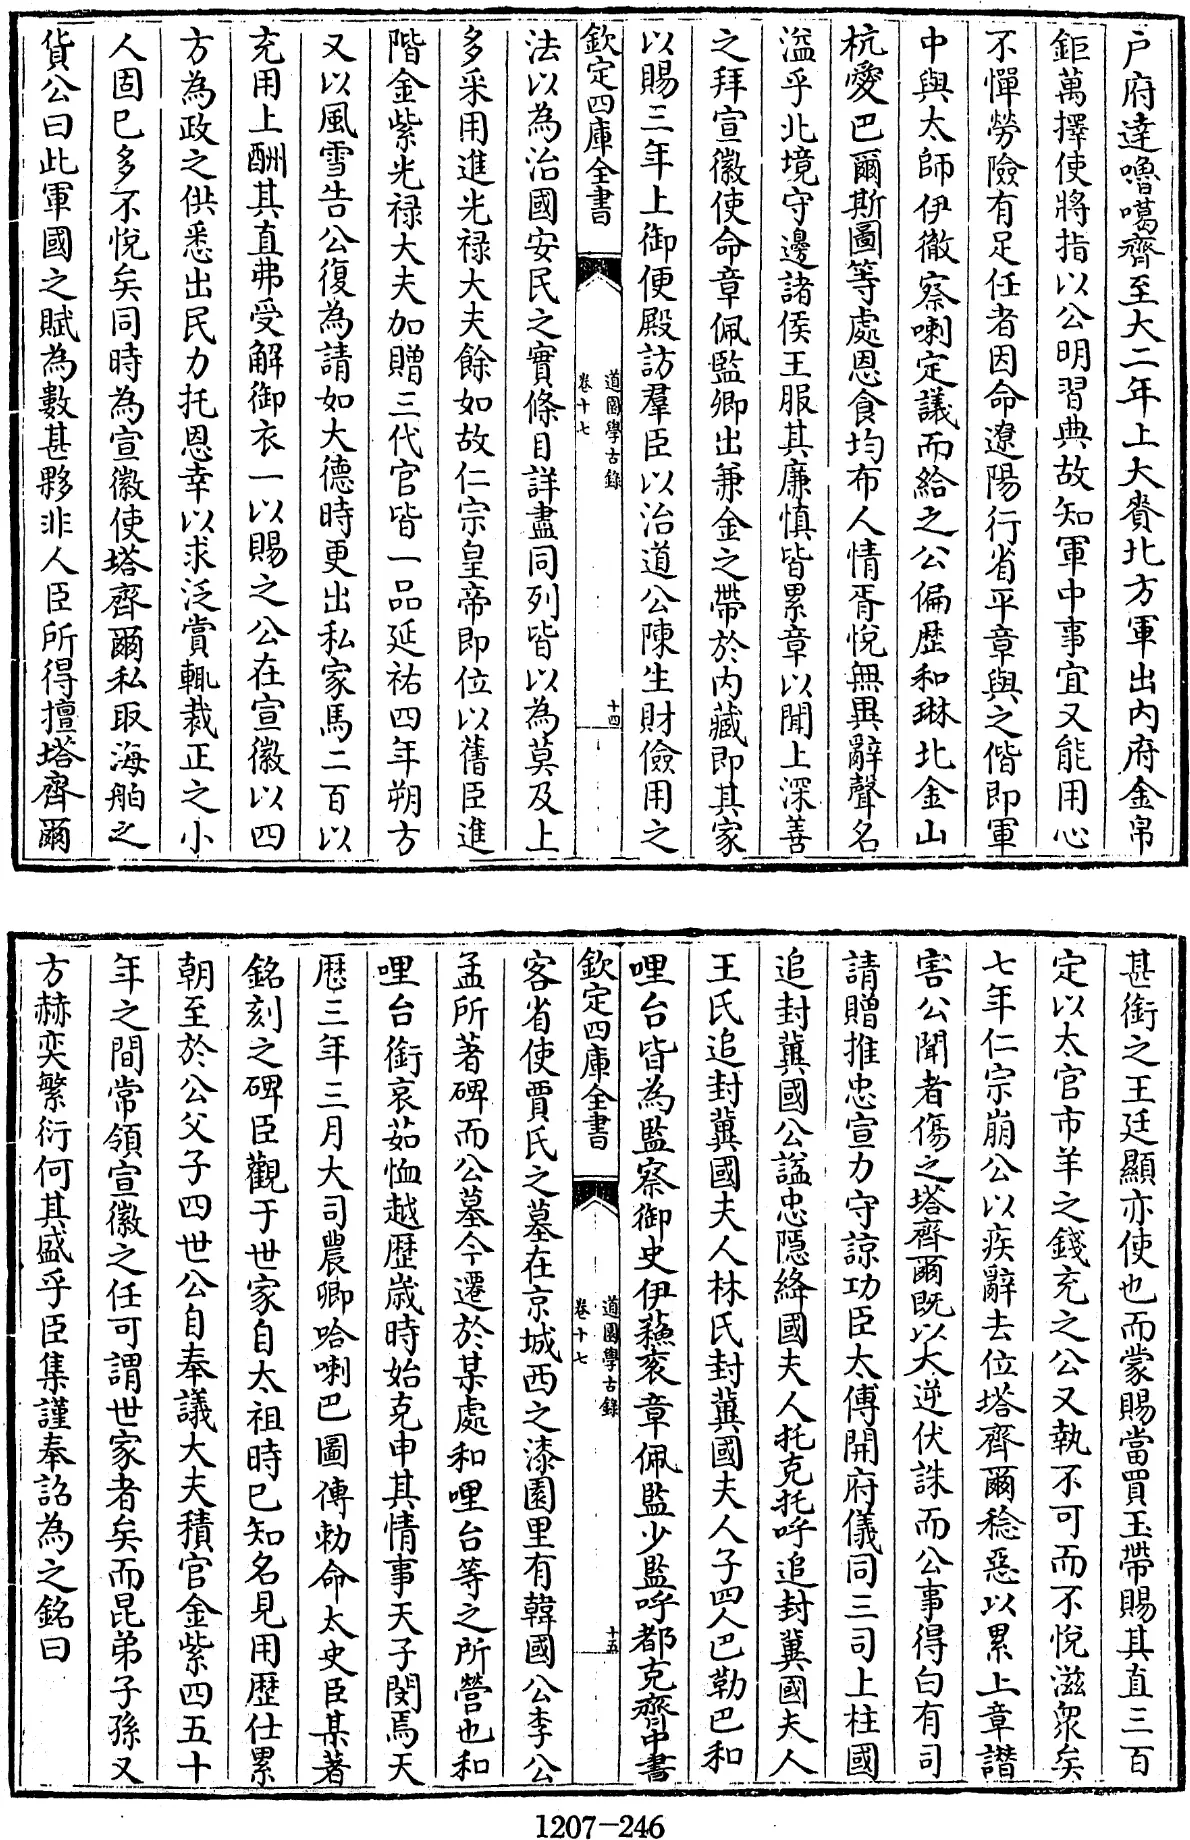 户府達嚕噶齊至大二年上大賚北方軍出内府金帛
鉅萬擇使將指以公明習典故知軍中事宜又能用心
不憚勞險有足任者因命遼陽行省平章與之偕即軍
中與太師伊徹察喇定議而給之公偏歴和琳北金山
杭愛巴爾斯圖等處恩食均布人情胥悅無異辭聲名
溢乎北境守邊諸侯王服其廉慎皆累章以聞上深善
之拜宣徽使命章佩監卿出兼金之帶於内藏即其家
以賜三年上御便殿訪羣臣以治道公陳生財儉用之
欽定四庫全書
道園學古錄
卷十七
十四
法以為治國安民之實條目詳盡同列皆以為莫及上
多采用進光禄大夫餘如故仁宗皇帝即位以舊臣進
階金紫光禄大夫加贈三代官皆一品延祐四年朔方
又以風雪告公復為請如大德時更出私家馬二百以
充用上酬其直弗受解御衣一以賜之公在宣徽以四
方為政之供悉出民力托恩幸以求泛賞輒裁正之小
人固已多不悅矣同時為宣徽使塔齊爾私取海舶之
貨公曰此軍國之賦為數甚夥非人臣所得擅塔齊爾
甚銜之王廷顯亦使也而蒙賜當買玉帶賜其直三百
定以太官市羊之錢充之公又執不可而不悅滋衆矣
七年仁宗崩公以疾辭去位塔齊爾稔惡以累上章譖
害公聞者傷之塔齊爾既以大逆伏誅而公事得白有司
請贈推忠宣力守諒功臣太傅開府儀同三司上柱國
追封冀國公諡忠隱絳國夫人托克托呼追封冀國夫人
王氏追封冀國夫人林氏封冀國夫人子四人巴勒巴和
哩台皆為監察御史伊蘓衮章佩監少監呼都克齊中書
欽定四庫全書
道園學古錄
卷十七
十五
客省使賈氏之墓在京城西之漆園里有韓國公李公
孟所著碑而公墓今遷於某處和哩台等之所營也和
哩台銜哀茹恤越歴歳時始克申其情事天子閔焉天
厯三年三月大司農卿哈喇巴圖傳勅命太史臣某著
銘刻之碑臣觀于世家自太祖時已知名見用歴仕累
朝至於公父子四世公自奉議大夫積官金紫四五十
年之間常領宣徽之任可謂世家者矣而昆弟子孫又
方赫奕繁衍何其盛乎臣集謹奉詔為之銘曰
1207-246